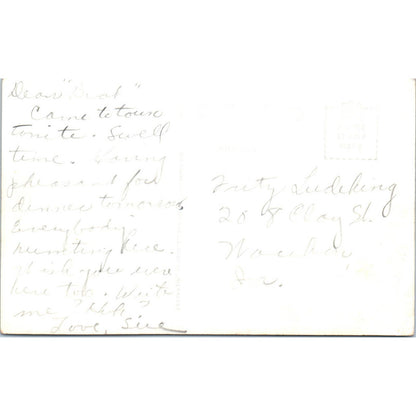 Dear "Brat"
Came to
tonite. Swell
time. Having
pheasant for
dinner tomorrow
Everybody
hunting here.
Wish you were
here too. Write
me
Love, Sue
Fritz Ludeking
208 Clay St.
Waukon
Ia.
PLACE
STAMP
HERE